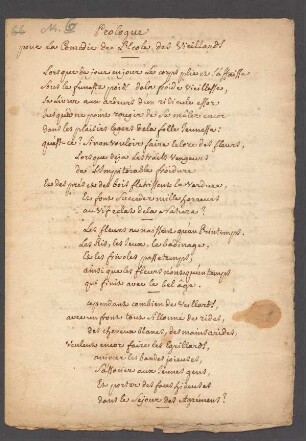 66 No. 6
Prologue
pour la Comedie de l'Ecole des Vieillards
Lorsque de jour en jour le corps plie et s'affaisse
sous le funeste poids de la froide vieillesse,
se livrer aux ardeurs d'un ridicule
jusqu'à ne point rougir de se mêler encor
dans les plaisirs legers de la folle jeunesse:
qu'est-ce? Sinon vouloir faire éclore des fleurs,
Lorsque deja les traits vengeurs
de l'impitoyable froidure
Et des prés et des bois flétrissent la verdure,
Et font succéder mille horreurs
au vif éclat de la Nature?
Les fleurs ne naissent qu'au Printemps.
Les Ris, les Jeux, le badinage,
Et les frivoles passetemps,
ainsi que les fleurs n'ont qu'un temps
qui finit avec le bel âge.
cependant combien de Vieillards,
avec un front tout sillonné de rides,
des cheveux blancs, des mains arides,
Veulent encor faire les Egrillards,
suivre les bandes joieuses,
s'associer aux jeunes gens,
Et porter des faces hideuses
dans le séjour des Agrémens?